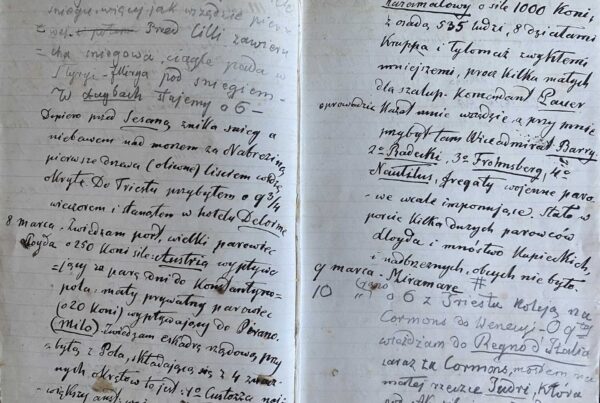 śniegu, więcej jak wszędzie
Przed Cilli zawieru
cha śniegowa, ciągle jazda w
Styryi pod śniegiem -
W stajemy o 6 -
Dopiero przed Sesaną znika śnieg a
niebawem nad morzem za Nabrezina
pierwsze drzewa (oliwne) liściem
okryte. Do Triestu przybyłem o 9 3/4
wieczorem i stanąłem w hotelu Delorme
8 marca. Zwidzam port, wielki parowiec
Lloyda o 250 Koni siły: Austria wypływa
=jący za parę dni do Konstantyno=
pola, mały prywatny parowiec
(o 20 Koni) wypływający do Pirano.
(Milo) Zwidzam eskadrę rządową, przy
=byłą z Pola, składającą się z 4
nych okrętów to jest: 1o Custozza naj=
większy
o sile 1000 Koni,
z osadą 535 ludzi, 8 działami
Kruppa i tylomaż zwykłemi
mniejszemi, prócz kilka małych
dla szalup. Komendant
oprowadzić Kazał mnie wszędzie a przy mnie
przybył tam Wiceadmirał Barry
2o Radecki, 3o Frohnsberg, 4o
Nautilus, fregaty wojenne paro=
=we wcale imponujące. Stało w
porcie kilka dużych parowców
Lloyda i mnóstwo kupieckich,
i nadbrzeżnych, obcych nie było.
9 marca - Miramare #
10 o 6 z Triestu koleją na
Cormons do Wenecyi - O
wjeżdżam do Regno d'Italia
zaraz za Cormons, mostem na
małej rzeczce Judri, która